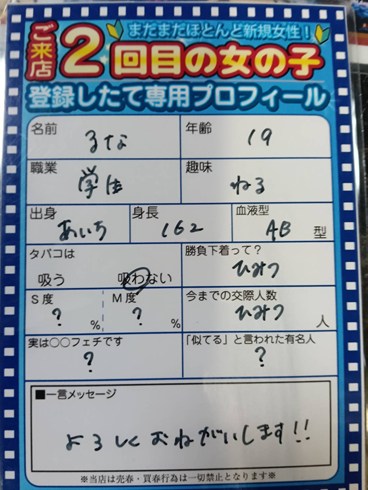 まだまだほとんど新規女性！
ご来店2回目の女の子
登録したて専用プロフィール
名前 るな 年齢 19
職業 学生 趣味 ねる
出身 あいち 身長 162 血液型 AB 型
タバコは 勝負下着って？
吸う 吸わない ひみつ
S度 M度 今までの交際人数
? % ? % ひみつ 人
実は○○フェチです 「似てる」と言われた有名人
? ?
■一言メッセージ
よろしくおねがいします!!
※当店は売春・買春行為は一切禁止となります※